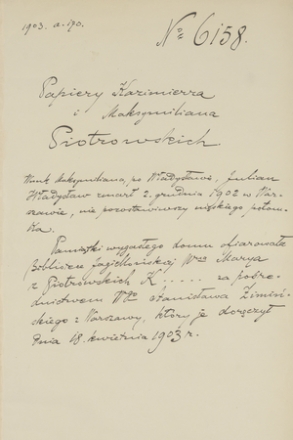 1903. a. 190.
№ 6158.
Papiery Kazimierza
i Maksymiliana
Piotrowskich
Wnuk Maksymiliana, po Władysławie, Julian
Władysław zmarł 2. grudnia 1902 w War-
szawie, nie pozostawiwszy męskiego potom-
ka.
Pamiątki wygasłego domu ofiarowała
Bibliotece Jagiellońskiej Wna Marya
z Piotrowskich K..... za pośre-
dnictwem Stanisława Zimiń-
skiego z Warszawy, który je doręczył
dnia 18. kwietnia 1903 r.